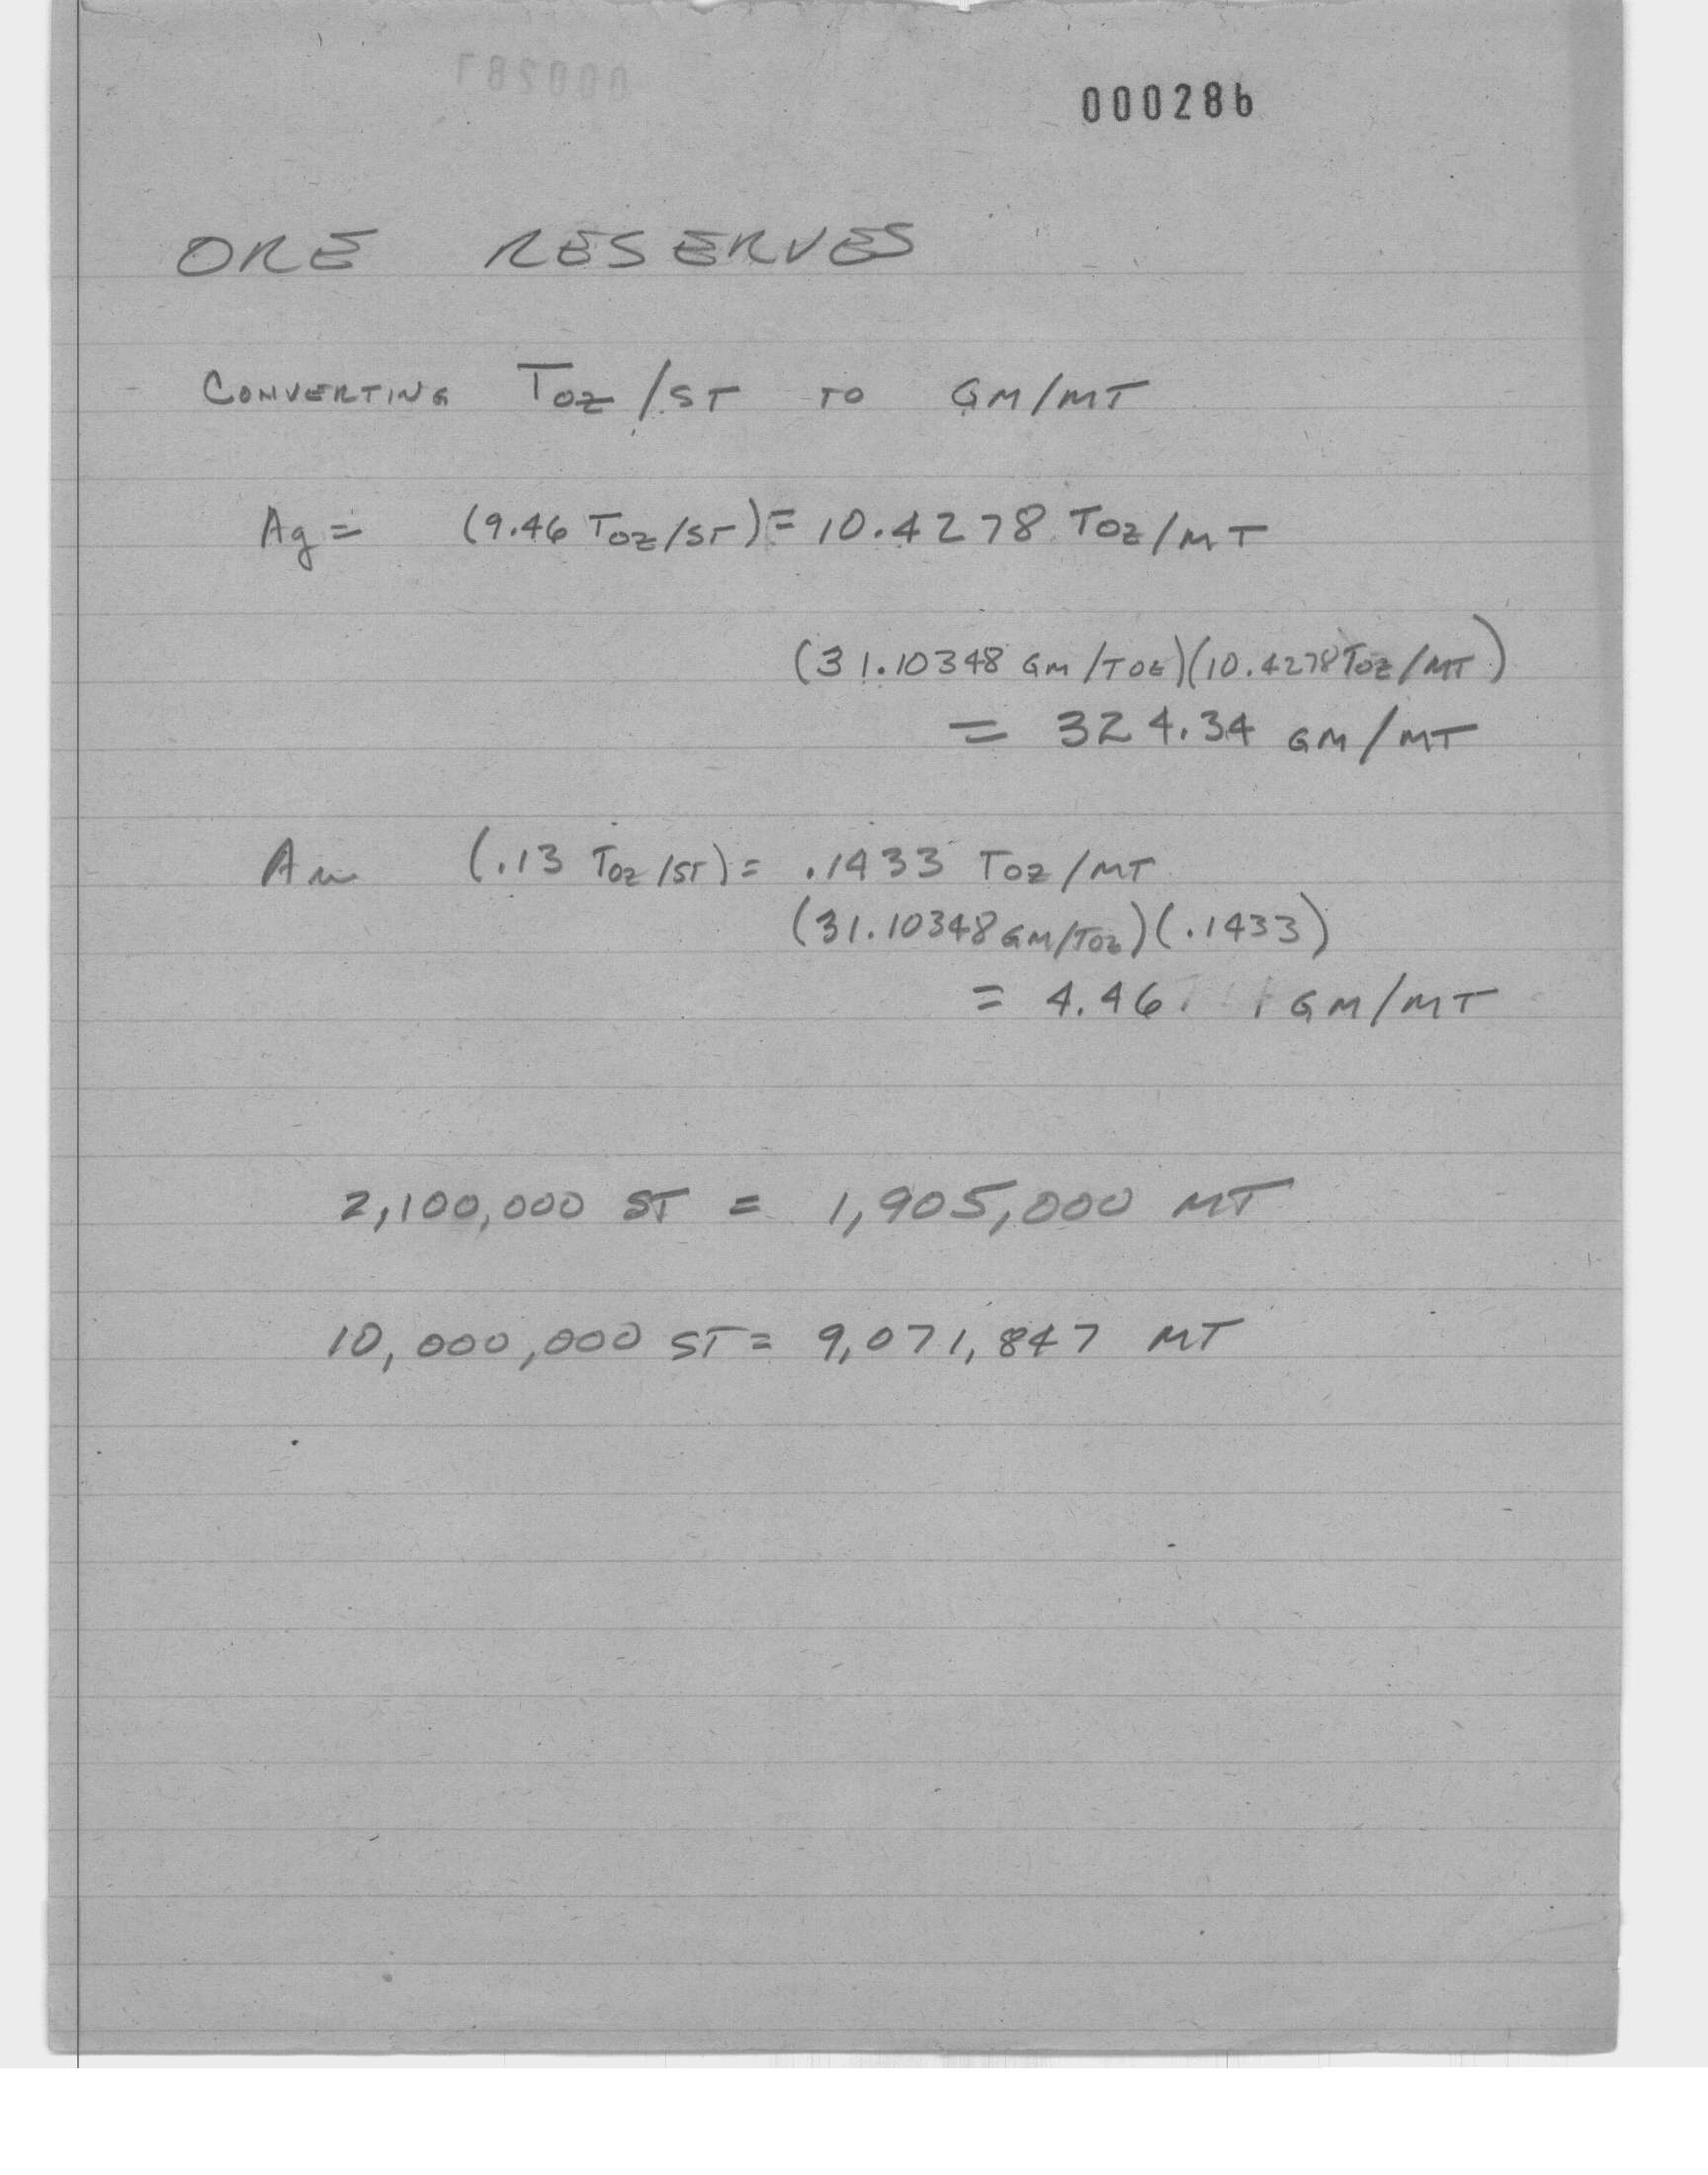 000286
ORE RESERVES
CONVERTING TOZ/ST TO GM/MT
Ag = (9.46 TOZ/ST) = 10.4278 TOZ/MT
(31.10348 GM/TOZ)(10.4278 TOZ/MT)
= 324.34 GM/MT
Au (.13 TOZ/ST) = .1433 TOZ/MT
(31.10348 GM/TOZ)(.1433)
= 4.46 GM/MT
2,100,000 ST = 1,905,000 MT
10,000,000 ST = 9,071,847 MT